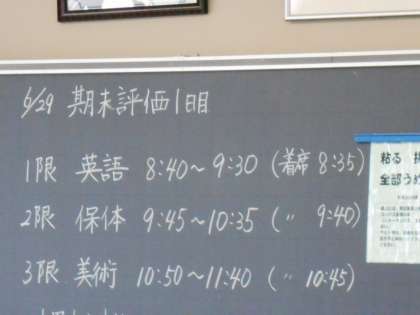 6/29 期末評価1日目
1限 英語 8:40～9:30 (着席 8:35)
2限 保体 9:45～10:35 (〃 9:40)
3限 美術 10:50～11:40 (〃 10:45)
粘る
全部うめ